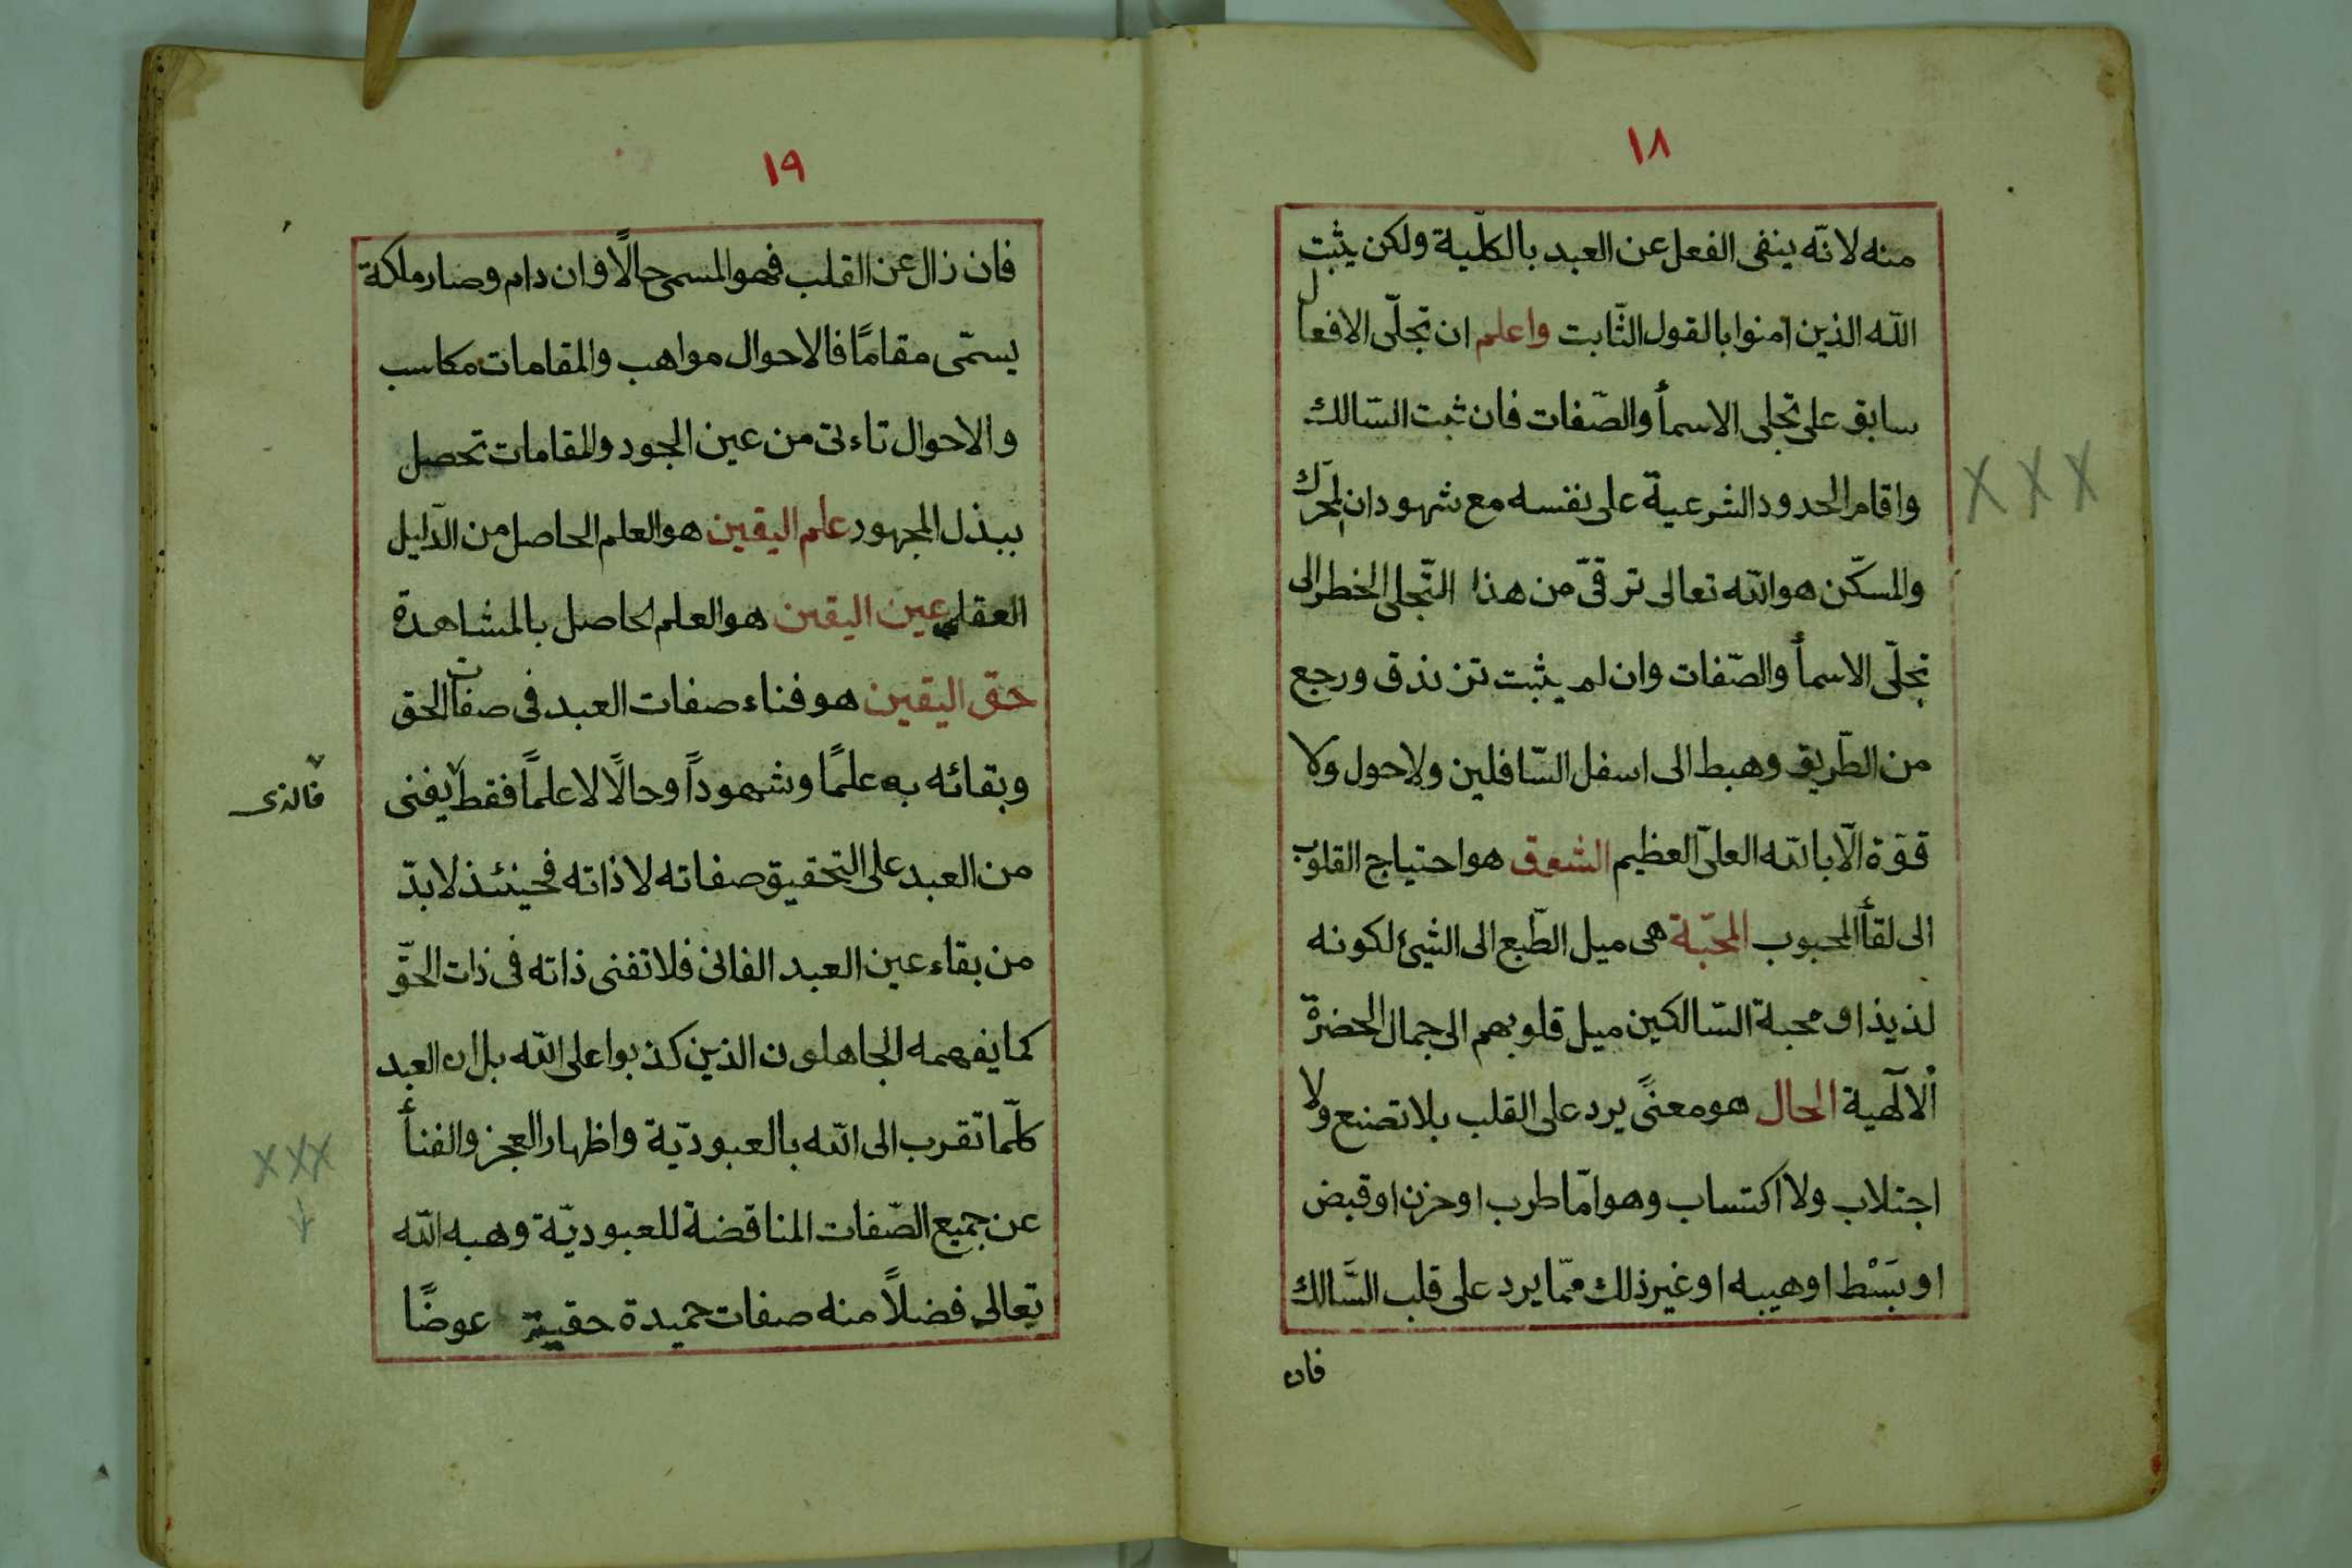 ١٨
منه لانّه ينفى الفعل عن العبد بالكلّية ولكن يثبّت
اللّه الذين آمنوا بالقول الثّابت واعلم ان تجلّى الافعال
سابق على تجلى الاسمأ والصّفات فان ثبت السّالك
واقام الحدود الشرعية على نفسه مع شهود ان المحرّك
والمسكّن هو اللّه تعالى ترقىّ من هذا التّجلى الخطر الى
تجلّى الاسمأ والصّفات وان لم يثبت تزندق ورجع
من الطّريق وهبط الى اسفل السّافلين ولاحول ولا
قوّة الّا باللّه العلىّ العظيم الشوق هو احتياج القلوب
الى لقأ المحبوب المحبّة هى ميل الطّبع الى الشيئ لكونه
لذيذا و محبة السّالكين ميل قلوبهم الى جمال الحضرة
الآلٓهية الحال هو معنىً يرد على القلب بلا تصنع ولا
اجتلاب ولا اكتساب وهو امّا طرب او حزن او قبض
او بَسْط او هيبه او غير ذلك ممّا يرد على قلب السَّالك
فان
١٩
فان زال عن القلب فهو المسمى حالًا وان دام وصار ملكة
يسمّى مقامًا فالاحوال مواهب والمقامات مكاسب
والاحوال تاءتى من عين الجود والمقامات تحصل
ببذل المجهود علم اليقين هو العلم الحاصل من الدّليل
العقلى عين اليقين هو العلم الحاصل بالمشاهدة
حق اليقين هو فناء صفات العبد فى صفات الحق
وبقائه به علمًا وشهوداً وحالًا لا علماً فقط يفنى
فالذى
من العبد على التحقيق صفاته لا ذاته فحينئذ لا بدّ
من بقاء عين العبد الفانى فلا تفنى ذاته فى ذات الحقّ
كما يفهمه الجاهلون الذين كذبوا على اللّه بل ان العبد
كلّما تقرب الى اللّه بالعبوديّة واظهار العجز والفنأ
عن جميع الصّفات المناقضة للعبوديّة وهبه اللّه
تعالى فضلًا منه صفات حميدة حقيية عوضًا